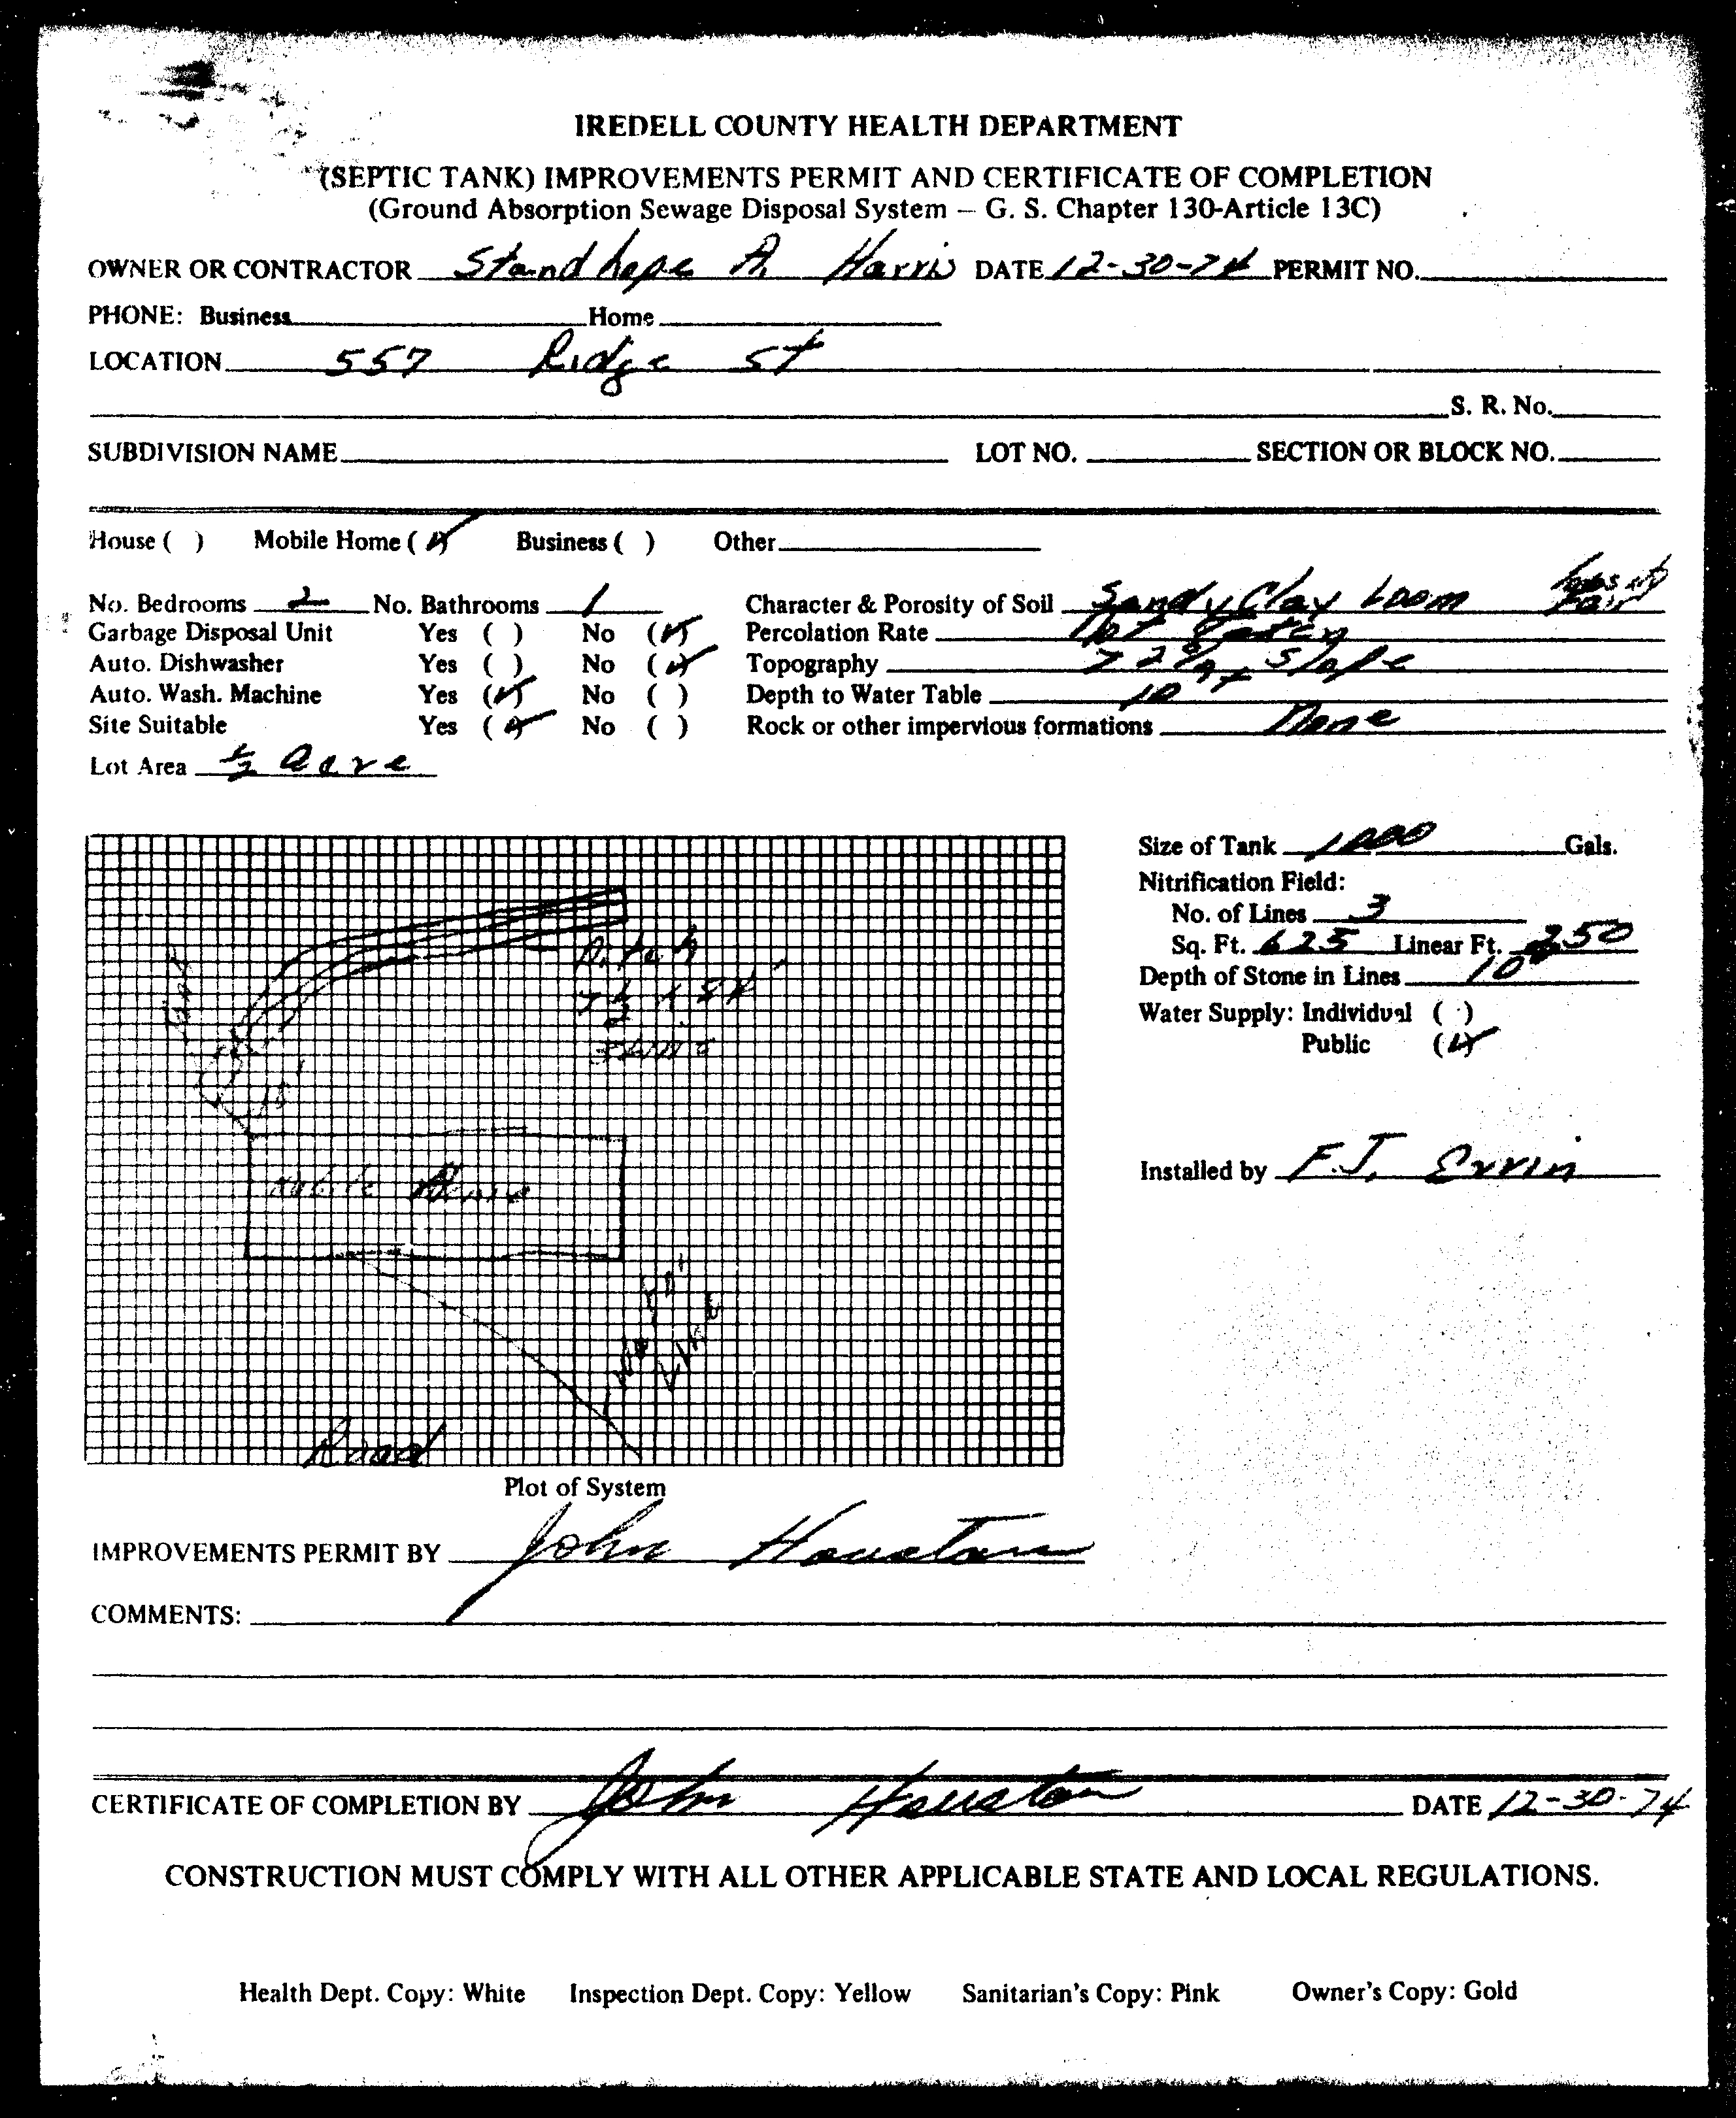 IREDELL COUNTY HEALTH DEPARTMENT
(SEPTIC TANK) IMPROVEMENTS PERMIT AND CERTIFICATE OF COMPLETION
(Ground Absorption Sewage Disposal System – G. S. Chapter 130-Article 13C)
OWNER OR CONTRACTOR Standhope A. Harris DATE 12-30-74 PERMIT NO.
PHONE: Business Home
LOCATION 557 Ridge St
S. R. No.
SUBDIVISION NAME LOT NO. SECTION OR BLOCK NO.
House ( ) Mobile Home (✓) Business ( ) Other
No. Bedrooms 2 No. Bathrooms 1 Character & Porosity of Soil Sandy Clay Loom Fair
Garbage Disposal Unit Yes ( ) No (✓) Percolation Rate Not
Auto. Dishwasher Yes ( ) No (✓) Topography > 2% Slope
Auto. Wash. Machine Yes (✓) No ( ) Depth to Water Table 10 +
Site Suitable Yes (✓) No ( ) Rock or other impervious formations None
Lot Area ½ acre
Size of Tank 1000 Gals.
Nitrification Field:
No. of Lines 3
Sq. Ft. 625 Linear Ft. 250
Depth of Stone in Lines 10"
Water Supply: Individual ( )
Public (✓)
Installed by F.J. Ervin
Ditch
15'
Mobile Home
Line
Road
Plot of System
IMPROVEMENTS PERMIT BY John Houston
COMMENTS:
CERTIFICATE OF COMPLETION BY John Houston DATE 12-30-74
CONSTRUCTION MUST COMPLY WITH ALL OTHER APPLICABLE STATE AND LOCAL REGULATIONS.
Health Dept. Copy: White Inspection Dept. Copy: Yellow Sanitarian's Copy: Pink Owner's Copy: Gold